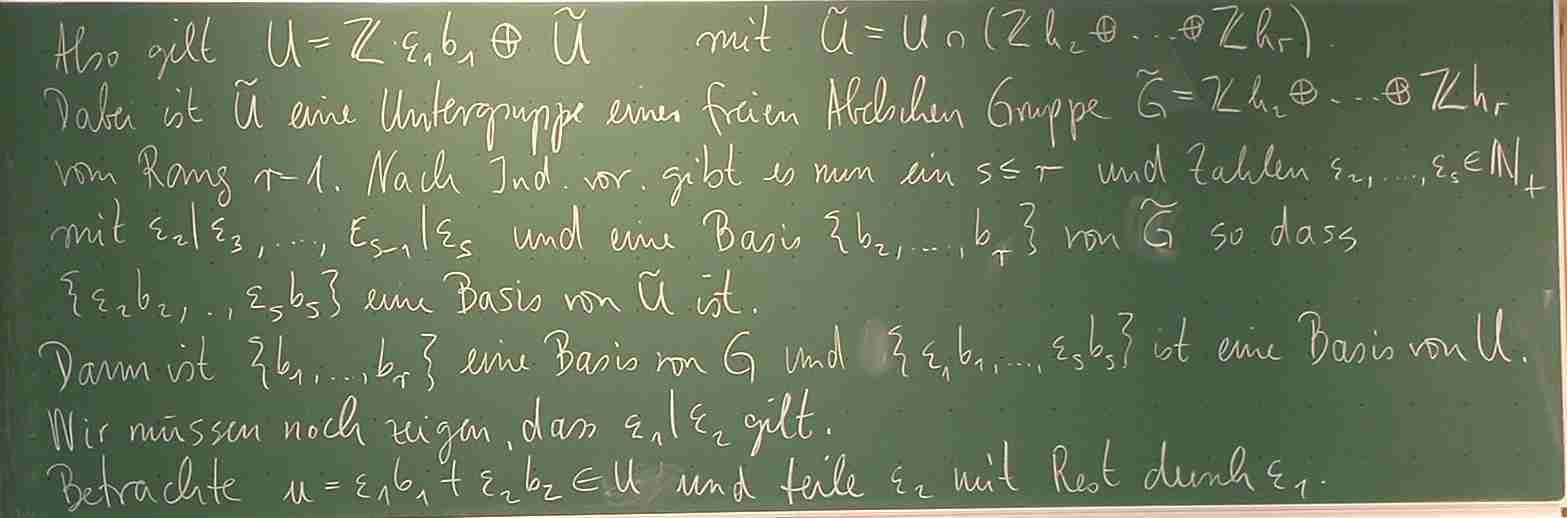 Also gilt U = ℤ·ε₁b₁ ⊕ Ũ mit Ũ = U ∩ (ℤh₂ ⊕ ... ⊕ ℤhᵣ).
Dabei ist Ũ eine Untergruppe einer freien Abelschen Gruppe G̃ = ℤh₂ ⊕ ... ⊕ ℤhᵣ
vom Rang r-1. Nach Ind. vor. gibt es nun ein s ≤ r und Zahlen ε₂, ..., εₛ ∈ ℕ₊
mit ε₂|ε₃, ..., εₛ₋₁|εₛ und eine Basis {b₂, ..., bᵣ} von G̃ so dass
{ε₂b₂, .., εₛbₛ} eine Basis von Ũ ist.
Dann ist {b₁, ..., bᵣ} eine Basis von G und {ε₁b₁, ..., εₛbₛ} ist eine Basis von U.
Wir müssen noch zeigen, dass ε₁|ε₂ gilt.
Betrachte u = ε₁b₁ + ε₂b₂ ∈ U und teile ε₂ mit Rest durch ε₁.